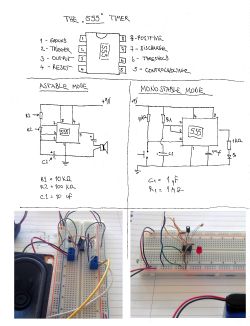 THE "555" TIMER
1 - GROUND
2 - TRIGGER
3 - OUTPUT
4 - RESET
555
8 - POSITIVE
7 - DISCHARGE
6 - THRESHOLD
5 - CONTROL VOLTAGE
ASTABLE MODE
R1
R2
555
C1
R1 = 10 KΩ
R2 = 100 KΩ
MONOSTABLE MODE
R1
555
C1
C1 = 1 µF
R1 = 1 MΩ